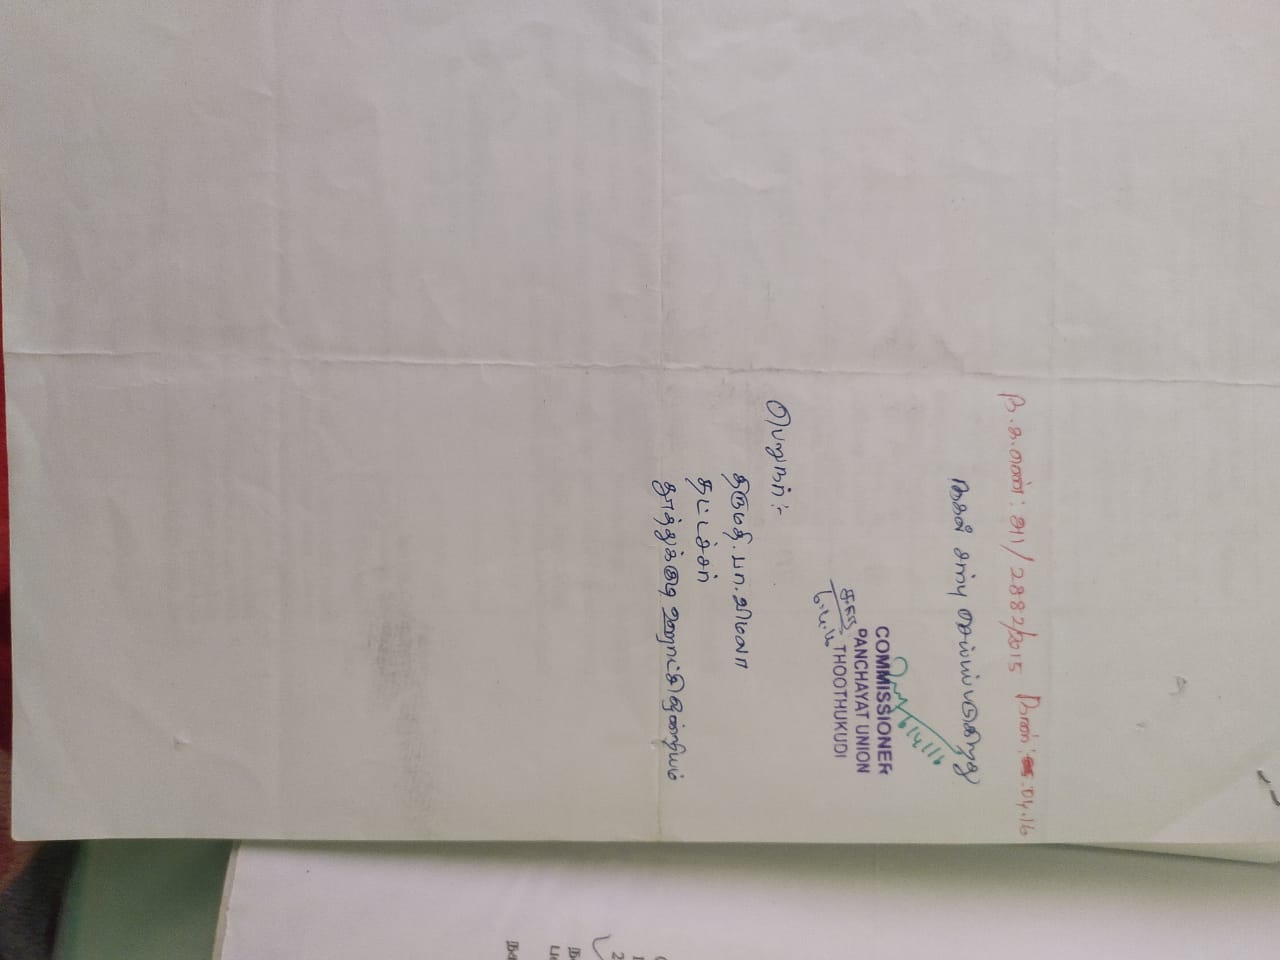 ந.க.எண்: அ1/2882/2015 நாள்: .04.16
நகல் சார்பு செய்யப்படுகிறது
6/4/16
COMMISSIONER
PANCHAYAT UNION
THOOTHUKUDI
6.4.16
பெறுநர்:-
திருமதி. பா. விமலா
தட்டச்சர்
தூத்துக்குடி ஊராட்சி ஒன்றியம்